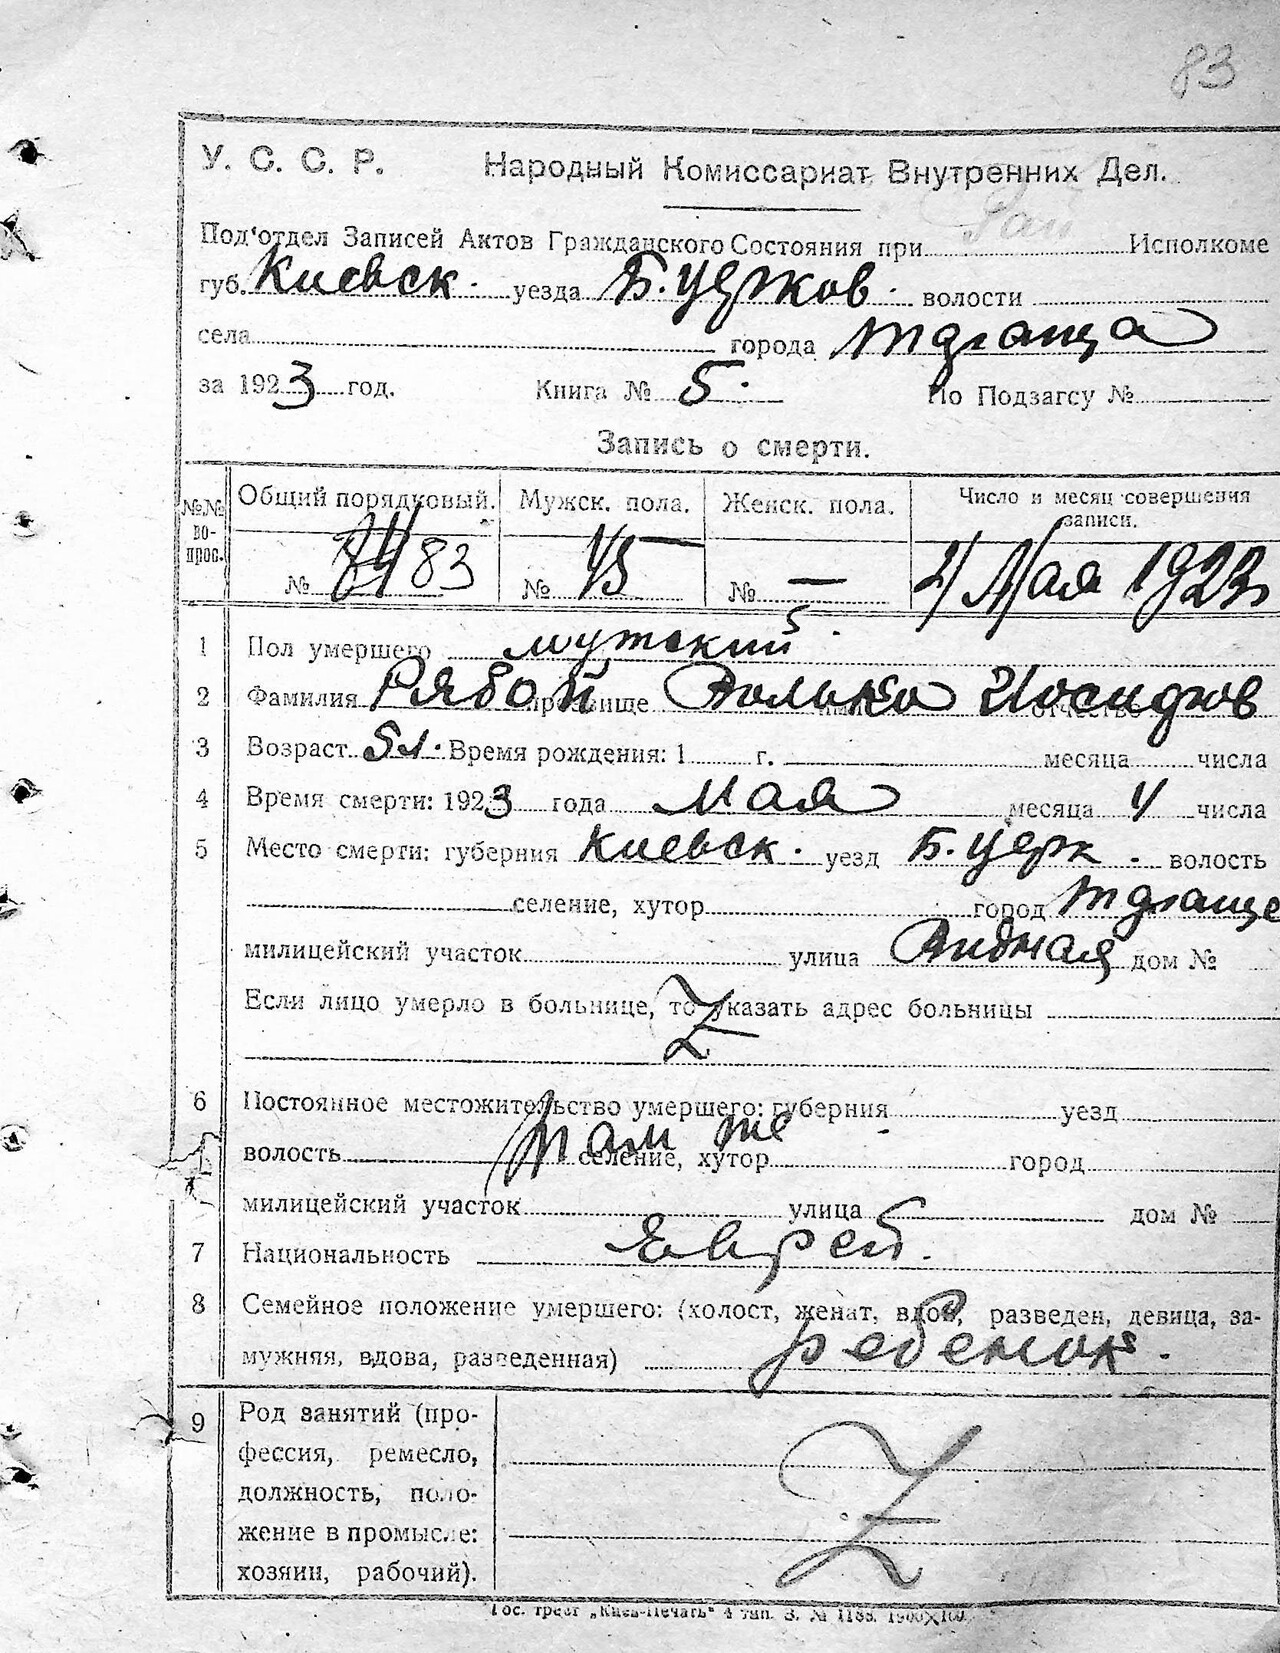 83
У. С. С. Р. Народный Комиссариат Внутренних Дел.
Под'отдел Записей Актов Гражданского Состояния при Рай Исполкоме
губ. Киевск. уезда Б. Церков. волости
села города
за 1923 год. Книга № 5. По Подзагсу №
Запись о смерти.
№№ вопрос. Общий порядковый. Мужск. пола. Женск. пола. Число и месяц совершения записи.
№ 83 № 45 № — 4 Мая 1923
1 Пол умершего мужский.
2 Фамилия Рябой прозвище имя отчество Иосифов
3 Возраст 5 л. Время рождения: 1 г. месяца числа
4 Время смерти: 1923 года Мая месяца 4 числа
5 Место смерти: губерния Киевск. уезд Б. Церк. волость
селение, хутор город
милицейский участок улица дом №
Если лицо умерло в больнице, то указать адрес больницы
6 Постоянное местожительство умершего: губерния уезд
Там же
волость селение, хутор город
милицейский участок улица дом №
7 Национальность Яврей.
8 Семейное положение умершего: (холост, женат, вдов, разведен, девица, за-
мужняя, вдова, разведенная) ребенок.
9 Род занятий (про-
фессия, ремесло,
должность, поло-
жение в промысле:
хозяин, рабочий).
Гос. трест „Киев-Печать" 4 тип. З. № 1188.